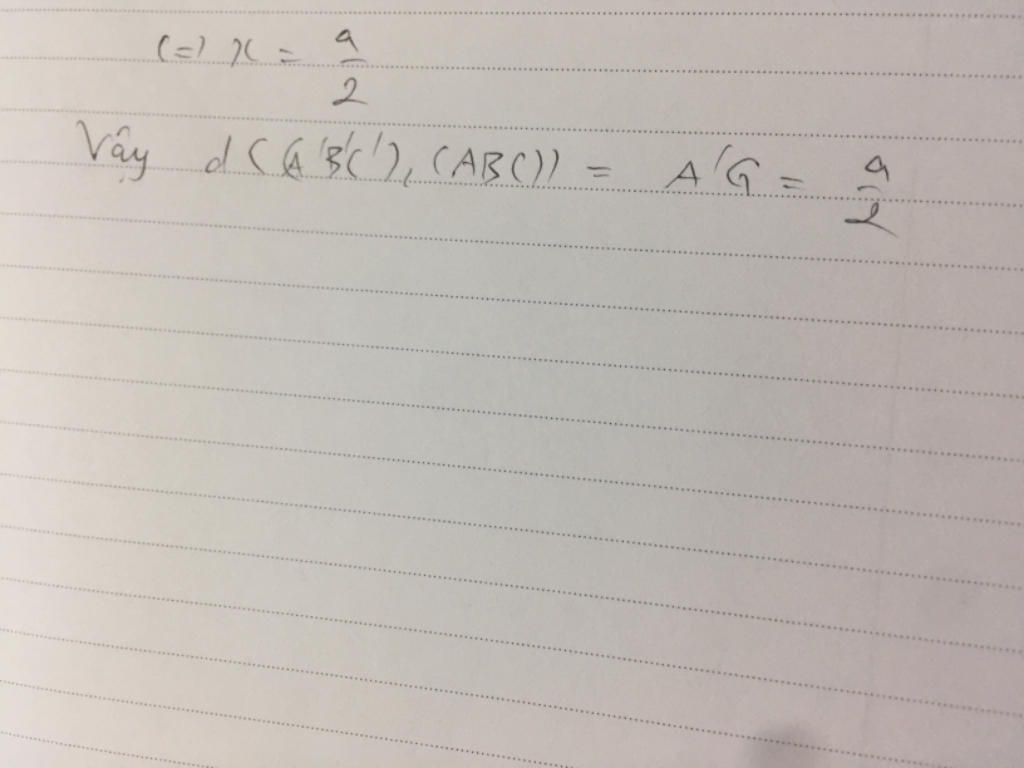 (=) x = a/2
Vậy d((A'B'C'), (ABC)) = A'G = a/2